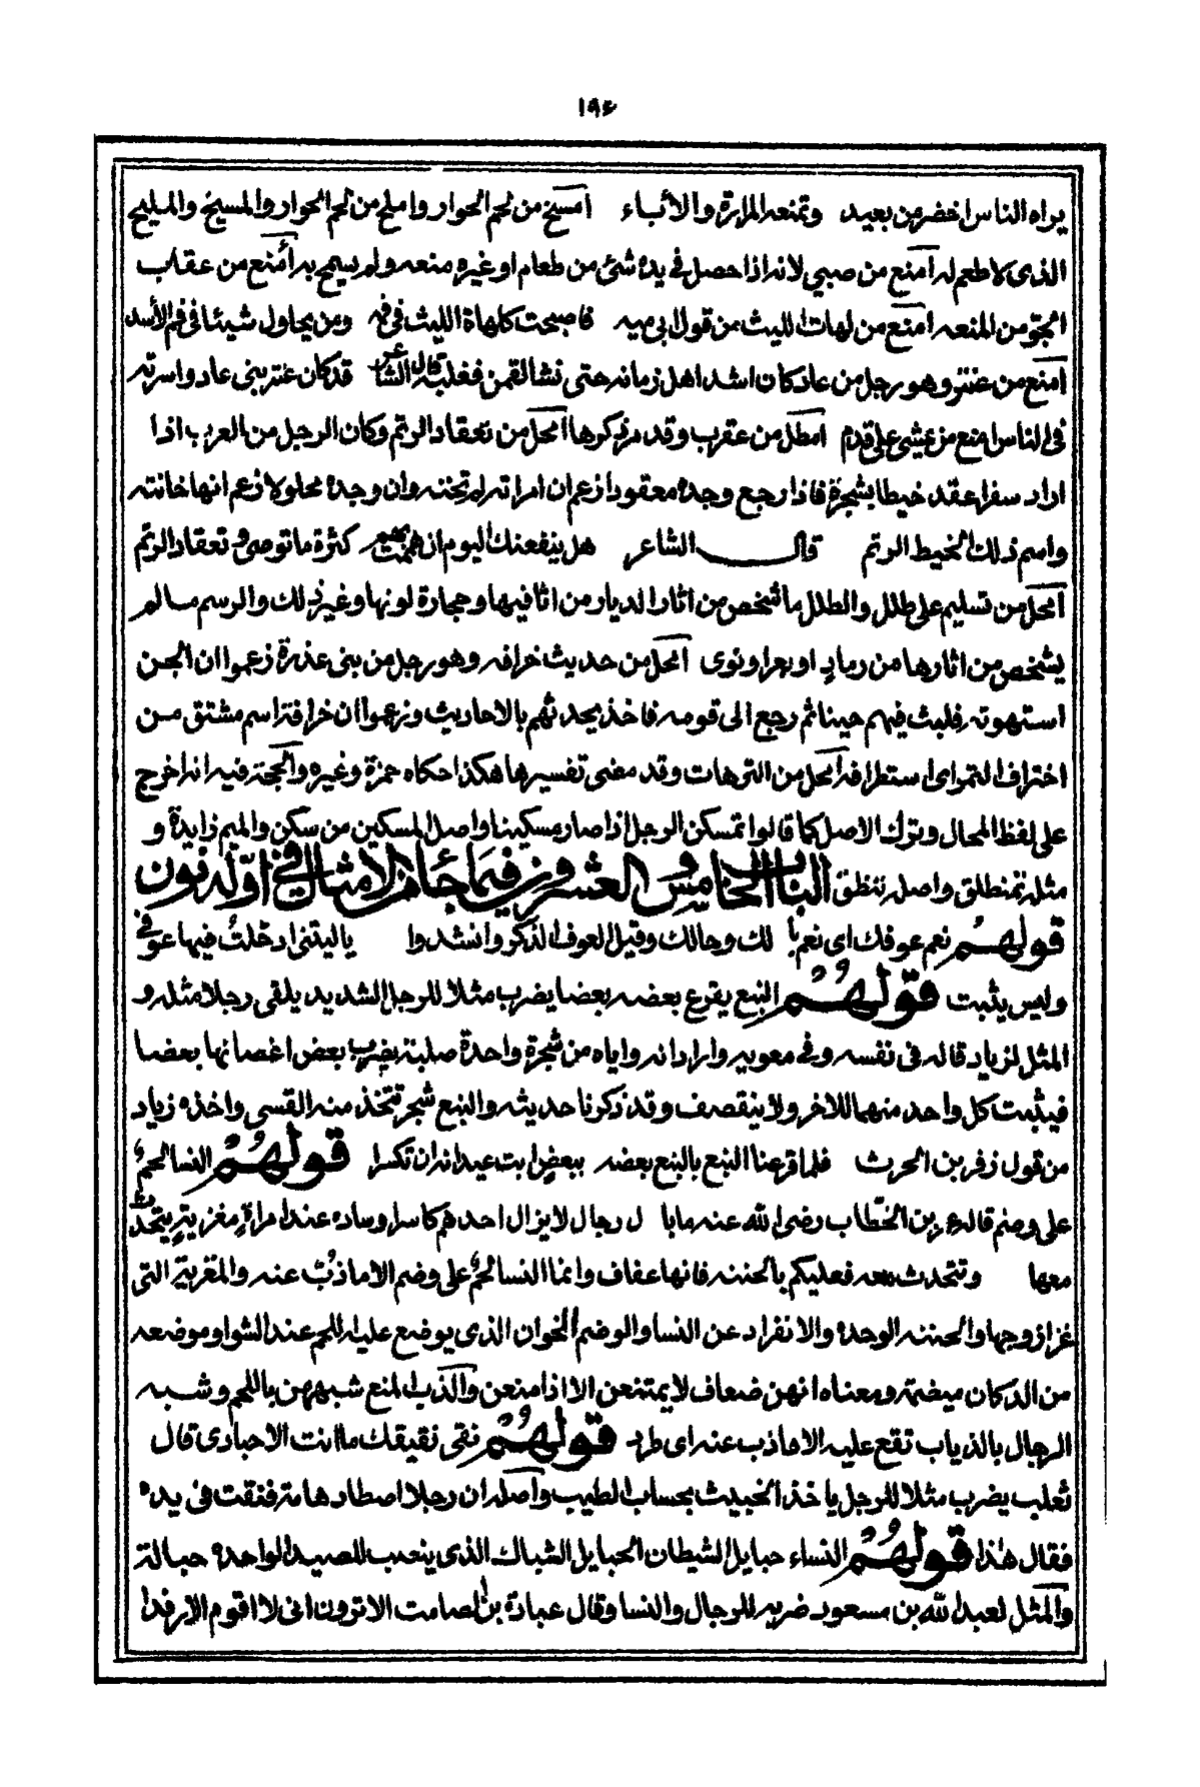 ١٩٤
يراه الناس اخضر من بعيد وتمنعه المرارة والأباء امسخ من لحم الحوار واملح من لحم الحوار والمسيخ والمليح
الذى لا طعم له امنع من صبي لانه اذا حصل في يده شئ من طعام او غيره منعه ولم يسمح به امنع من عقاب
الجو من المنعه امنع من لهات الليث من قول ابى فاصبحت كلهاة الليث في فه ومن يحاول شيئا في فم الأسد
امنع من عنتر وهو رجل من عاد كان اشد اهل زمانه حتى نشا لقمن فغلبه قال الشاعر قد كان عتر بنى عاد واسرته
في الناس امنع من يمشى على قدم امطل من عقرب وقد مر ذكرها امحل من تعقاد الرتم وكان الرجل من العرب اذا
اراد سفرا عقد خيطا بشجرة فاذا رجع وجده معقودا زعم ان امراته لم تخنه وان وجده محلولا زعم انها خانته
واسم ذلك الخيط الرتم قال الشاعر هل ينفعنك اليوم ان همت بهم كثرة ما توصى وتعقاد الرتم
امحل من تسليم على طلل والطلل ما شخص من اثار الديار من اثافيها وحجارة لونها وغير ذلك والرسم ما لم
يشخص من اثارها من رماد او بعر او نوى امحل من حديث خرافه وهو رجل من بنى عذرة زعموا ان الجن
استهوته فلبث فيهم حينا ثم رجع الى قومه فاخذ يحدثهم بالاحاديث وزعموا ان خرافة اسم مشتق من
اختراف التمر اى استطرافه امحل من الترهات وقد مضى تفسيرها هكذا حكاه حمزة وغيره والحجة فيه انه اخرج
على لفظ المحال وترك الاصل كما قالوا تمسكن الرجل اذا صار مسكينا واصل المسكين من سكن والميم زايدة و
مثله تمنطلق واصله تنطق الباب الخامس والعشرون فيما جاء من الامثال في اوّله نون
قولهم نعم عوفك اى نعم بالك وحالك وقيل العوف الذكر وانشدوا ياليتنى ادخلت فيها عوفى
وليس بثبت قولهم النبع يقرع بعضه بعضا يضرب مثلا للرجل الشديد يلقى رجلا مثله و
المثل لزياد قاله فى نفسه وفى معويه واراد انه واياه من شجرة واحدة صلبة يضرب بعض اغصانها بعضا
فيثبت كل واحد منهما للاخر ولا ينقصف وقد ذكرنا حديثه والنبع شجر تتخذ منه القسى واخذه زياد
من قول زفر بن الحرث فلما قرعنا النبع بالنبع بعضه ببعض ابت عيدانه ان تكسرا قولهم النسا لحم
على وضم قاله عمر بن الخطاب رضى الله عنه ما بال رجال لا يزال احدهم كاسرا وساده عند امراة مغزية يتحدث
معها وتتحدث معه فعليكم بالجنبه فانها عفاف وانما النسا لحم على وضم الا ما ذب عنه والمغزية التى
غزا زوجها والجنبه الوحدة والانفراد عن النسا والوضم الخوان الذى يوضع عليه اللحم عند الشوا وموضعه
من الدكان ميضمة ومعناه انهن ضعاف لا يمتنعن الا اذا منعن والذب المنع شبههن باللحم وشبه
الرجال بالذباب تقع عليه الا ما ذب عنه اى طرد قولهم نقى نقيقك ما انت الا حبارى قال
ثعلب يضرب مثلا للرجل ياخذ الخبيث بحساب الطيب واصله ان رجلا اصطاد هامة فنقت فى يده
فقال هذا قولهم النساء حبايل الشيطان الحبايل الشباك الذى ينصب للصيد الواحدة حبالة
والمثل لعبد الله بن مسعود ضربه للرجال والنسا وقال عبادة بن الصامت الا ترون انى لا اقوم الا رفدا